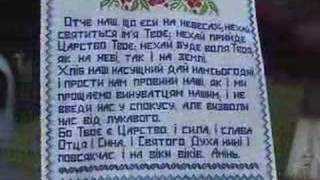 Отче наш, що єси на небесах, нехай
святиться ім'я Твоє; нехай прийде
Царство Твоє; нехай буде воля Твоя
як на небі, так і на землі.
Хліб наш насущний дай нам сьогодні
і прости нам провини наші, як і ми
прощаємо винуватцям нашим, і не
введи нас у спокусу, але визволи
нас від лукавого.
Бо Твоє є Царство, і сила, і слава
Отця і Сина, і Святого Духа нині і
повсякчас і на віки віків. Амінь.